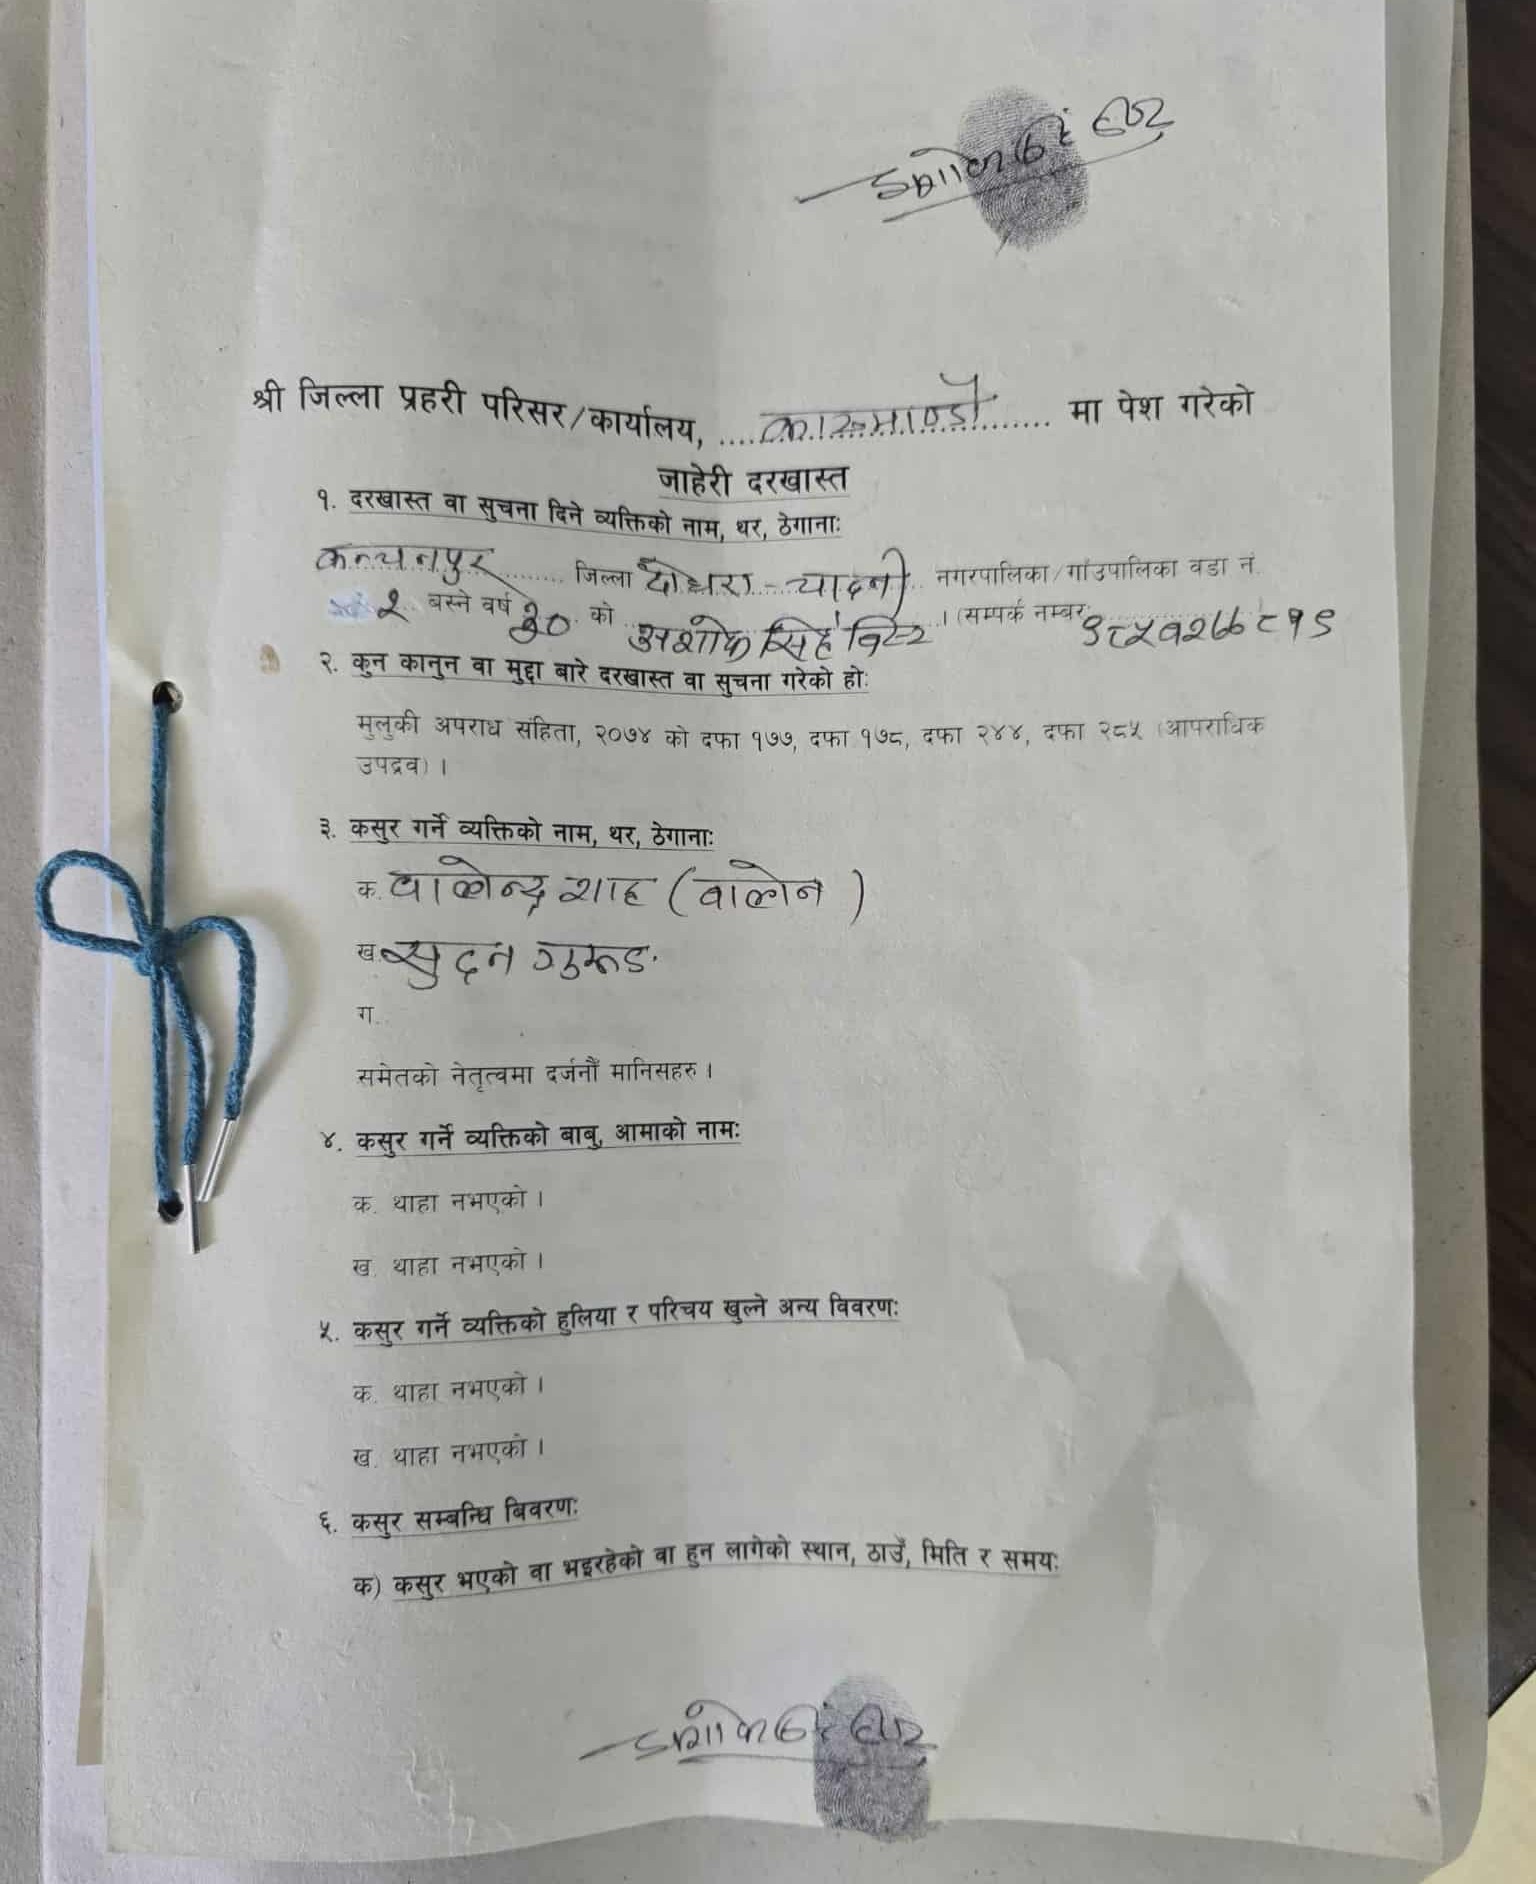 अशोक सिं विष्ट
श्री जिल्ला प्रहरी परिसर/कार्यालय, ....काठमाण्डौ.... मा पेश गरेको
जाहेरी दरखास्त
१. दरखास्त वा सुचना दिने व्यक्तिको नाम, थर, ठेगानाः
कन्चनपुर जिल्ला दोधारा - चादनी नगरपालिका/गाउपालिका वडा नं.
२ बस्ने वर्ष ३० को अशोक सिंह विष्ट । (सम्पर्क नम्बर
२. कुन कानुन वा मुद्दा बारे दरखास्त वा सुचना गरेको होः
मुलुकी अपराध संहिता, २०७४ को दफा १७७, दफा १७८, दफा २४४, दफा २८५ (आपराधिक
उपद्रव) ।
३. कसुर गर्ने व्यक्तिको नाम, थर, ठेगानाः
क. वालेन्द्र शाह (वालेन )
ख. सुदन गुरुङ.
ग.
समेतको नेतृत्वमा दर्जनौं मानिसहरु ।
४. कसुर गर्ने व्यक्तिको बाबु, आमाको नामः
क. थाहा नभएको ।
ख. थाहा नभएको ।
५. कसुर गर्ने व्यक्तिको हुलिया र परिचय खुल्ने अन्य विवरणः
क. थाहा नभएको ।
ख. थाहा नभएको ।
६. कसुर सम्बन्धि बिवरणः
क) कसुर भएको वा भइरहेको वा हुन लागेको स्थान, ठाउँ, मिति र समयः
अशोक सिं विष्ट